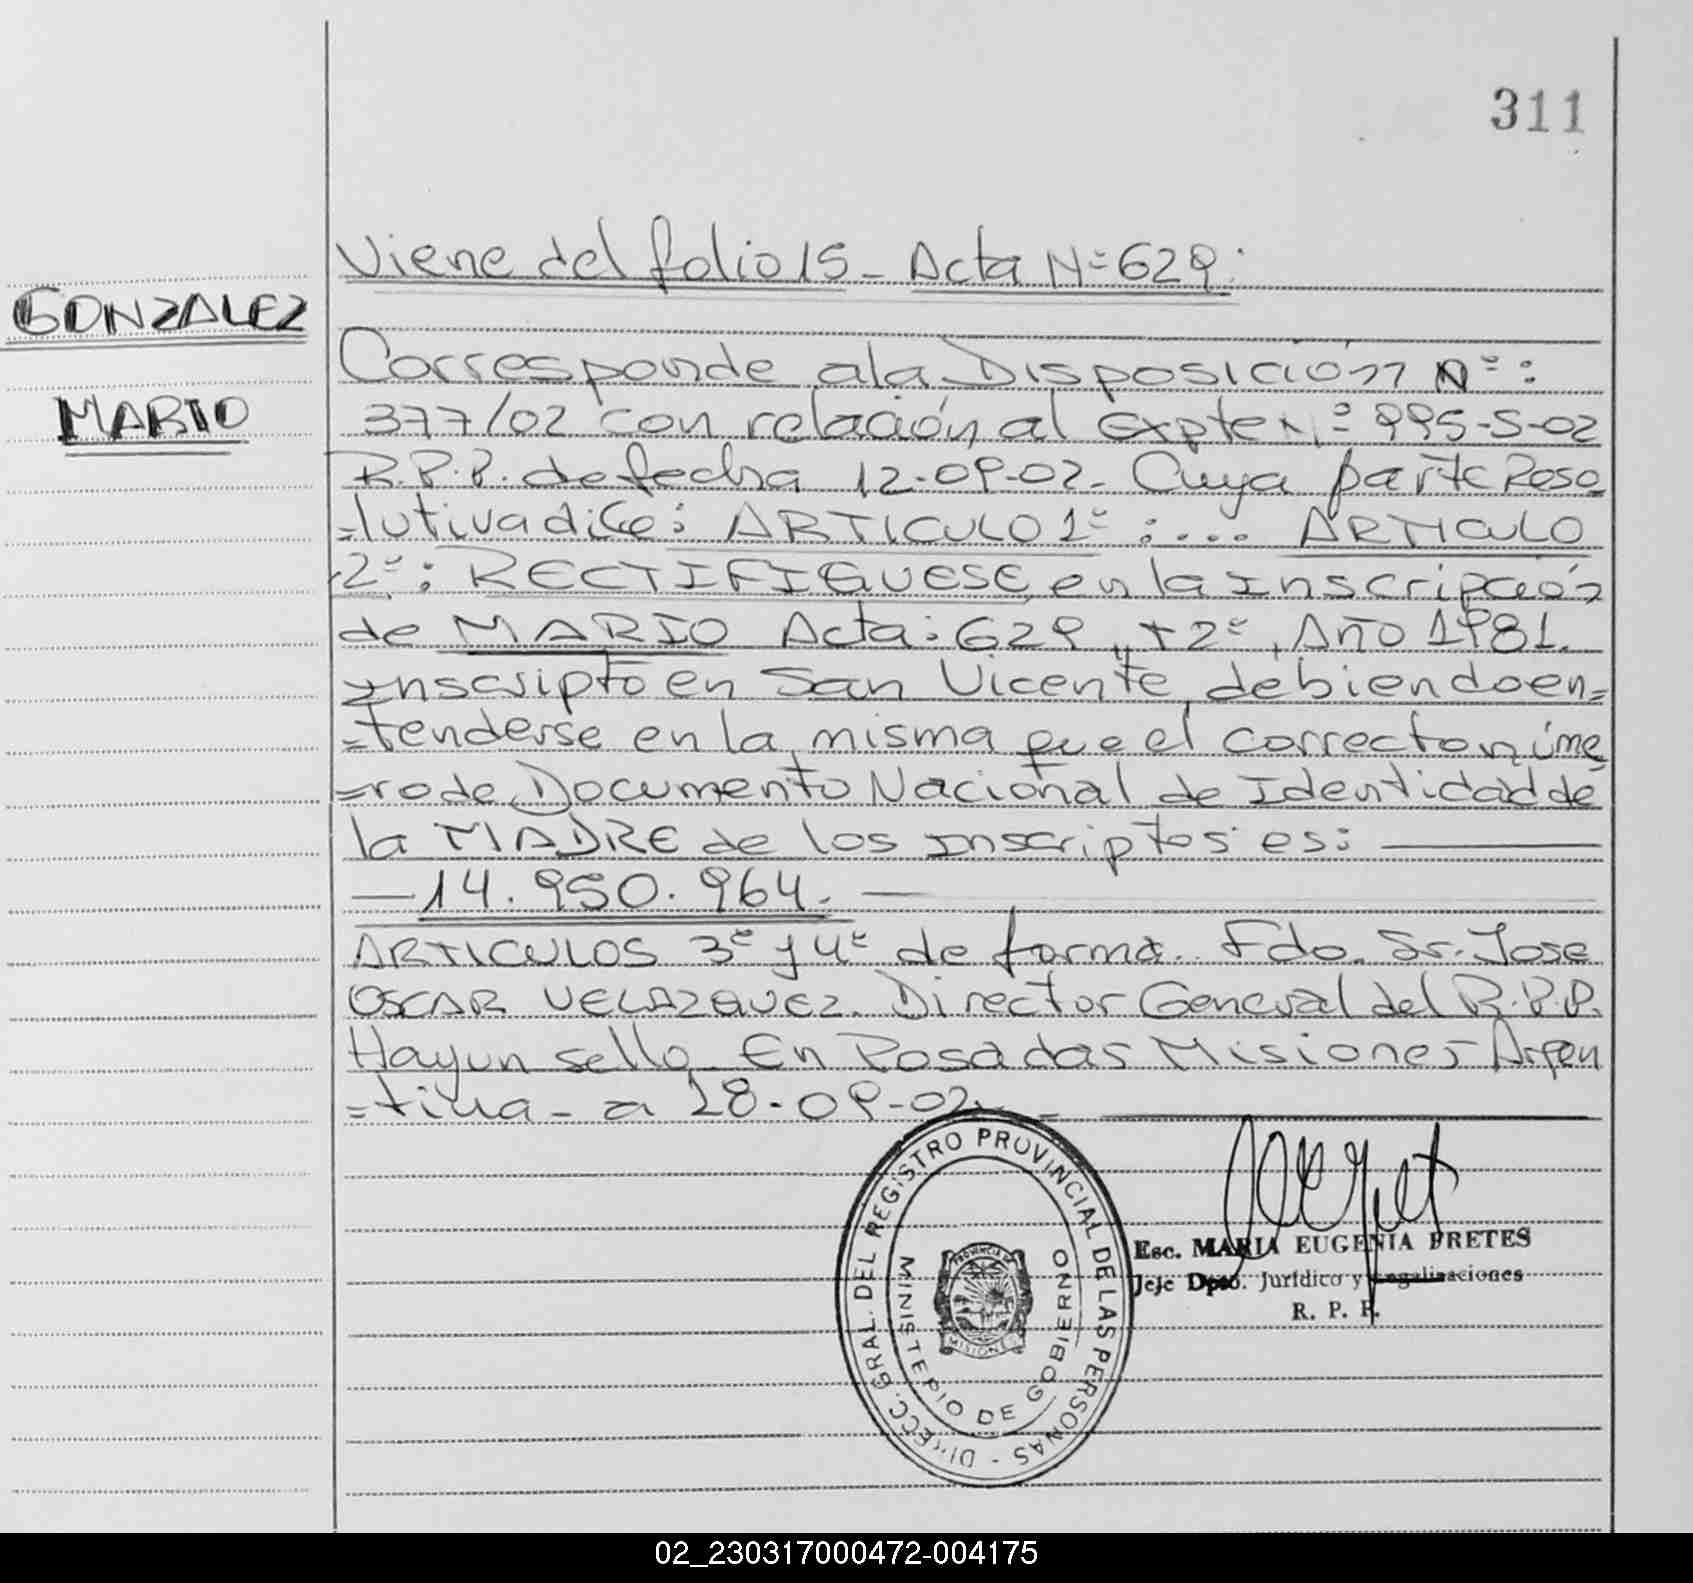 311
Viene del folio 15- Acta Nº 629:
GONZALEZ
MARIO
Corresponde a la Disposición Nº:
377/02 con relación al Expte Nº 995-S-02
R.P.P. de fecha 12-09-02- Cuya parte Reso
=lutiva dice: ARTICULO 1º:... ARTICULO
2º: RECTIFIQUESE en la Inscripción
de MARIO Acta: 629, t 2º, Año 1981.
Inscripto en San Vicente debiendo en=
=tenderse en la misma que el correcto núme
=ro de Documento Nacional de Identidad de
la MADRE de los Inscriptos es:
-14.950.964.-
ARTICULOS 3º y 4º de forma. Fdo. Sr. Jose
OSCAR VELAZQUEZ. Director General del R.P.P.
Hay un sello. En Posadas Misiones Argen
=tina- a 18-09-02-
DIRECC. GRAL. DEL REGISTRO PROVINCIAL DE LAS PERSONAS -
MINISTERIO DE GOBIERNO
PROVINCIA DE
MISIONES
Esc. MARIA EUGENIA PRETES
Jefe Dpto. Jurídico y Legalizaciones
R. P. P.
02_230317000472-004175